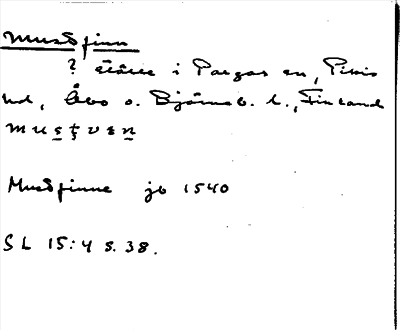 Mustfinn
? ställe i Pargas sn, Pikis
hd, Åbo o. Björneb. l., Finland
m u s t v e n
Mustfinne jb 1540
SL 15:4 s. 38.